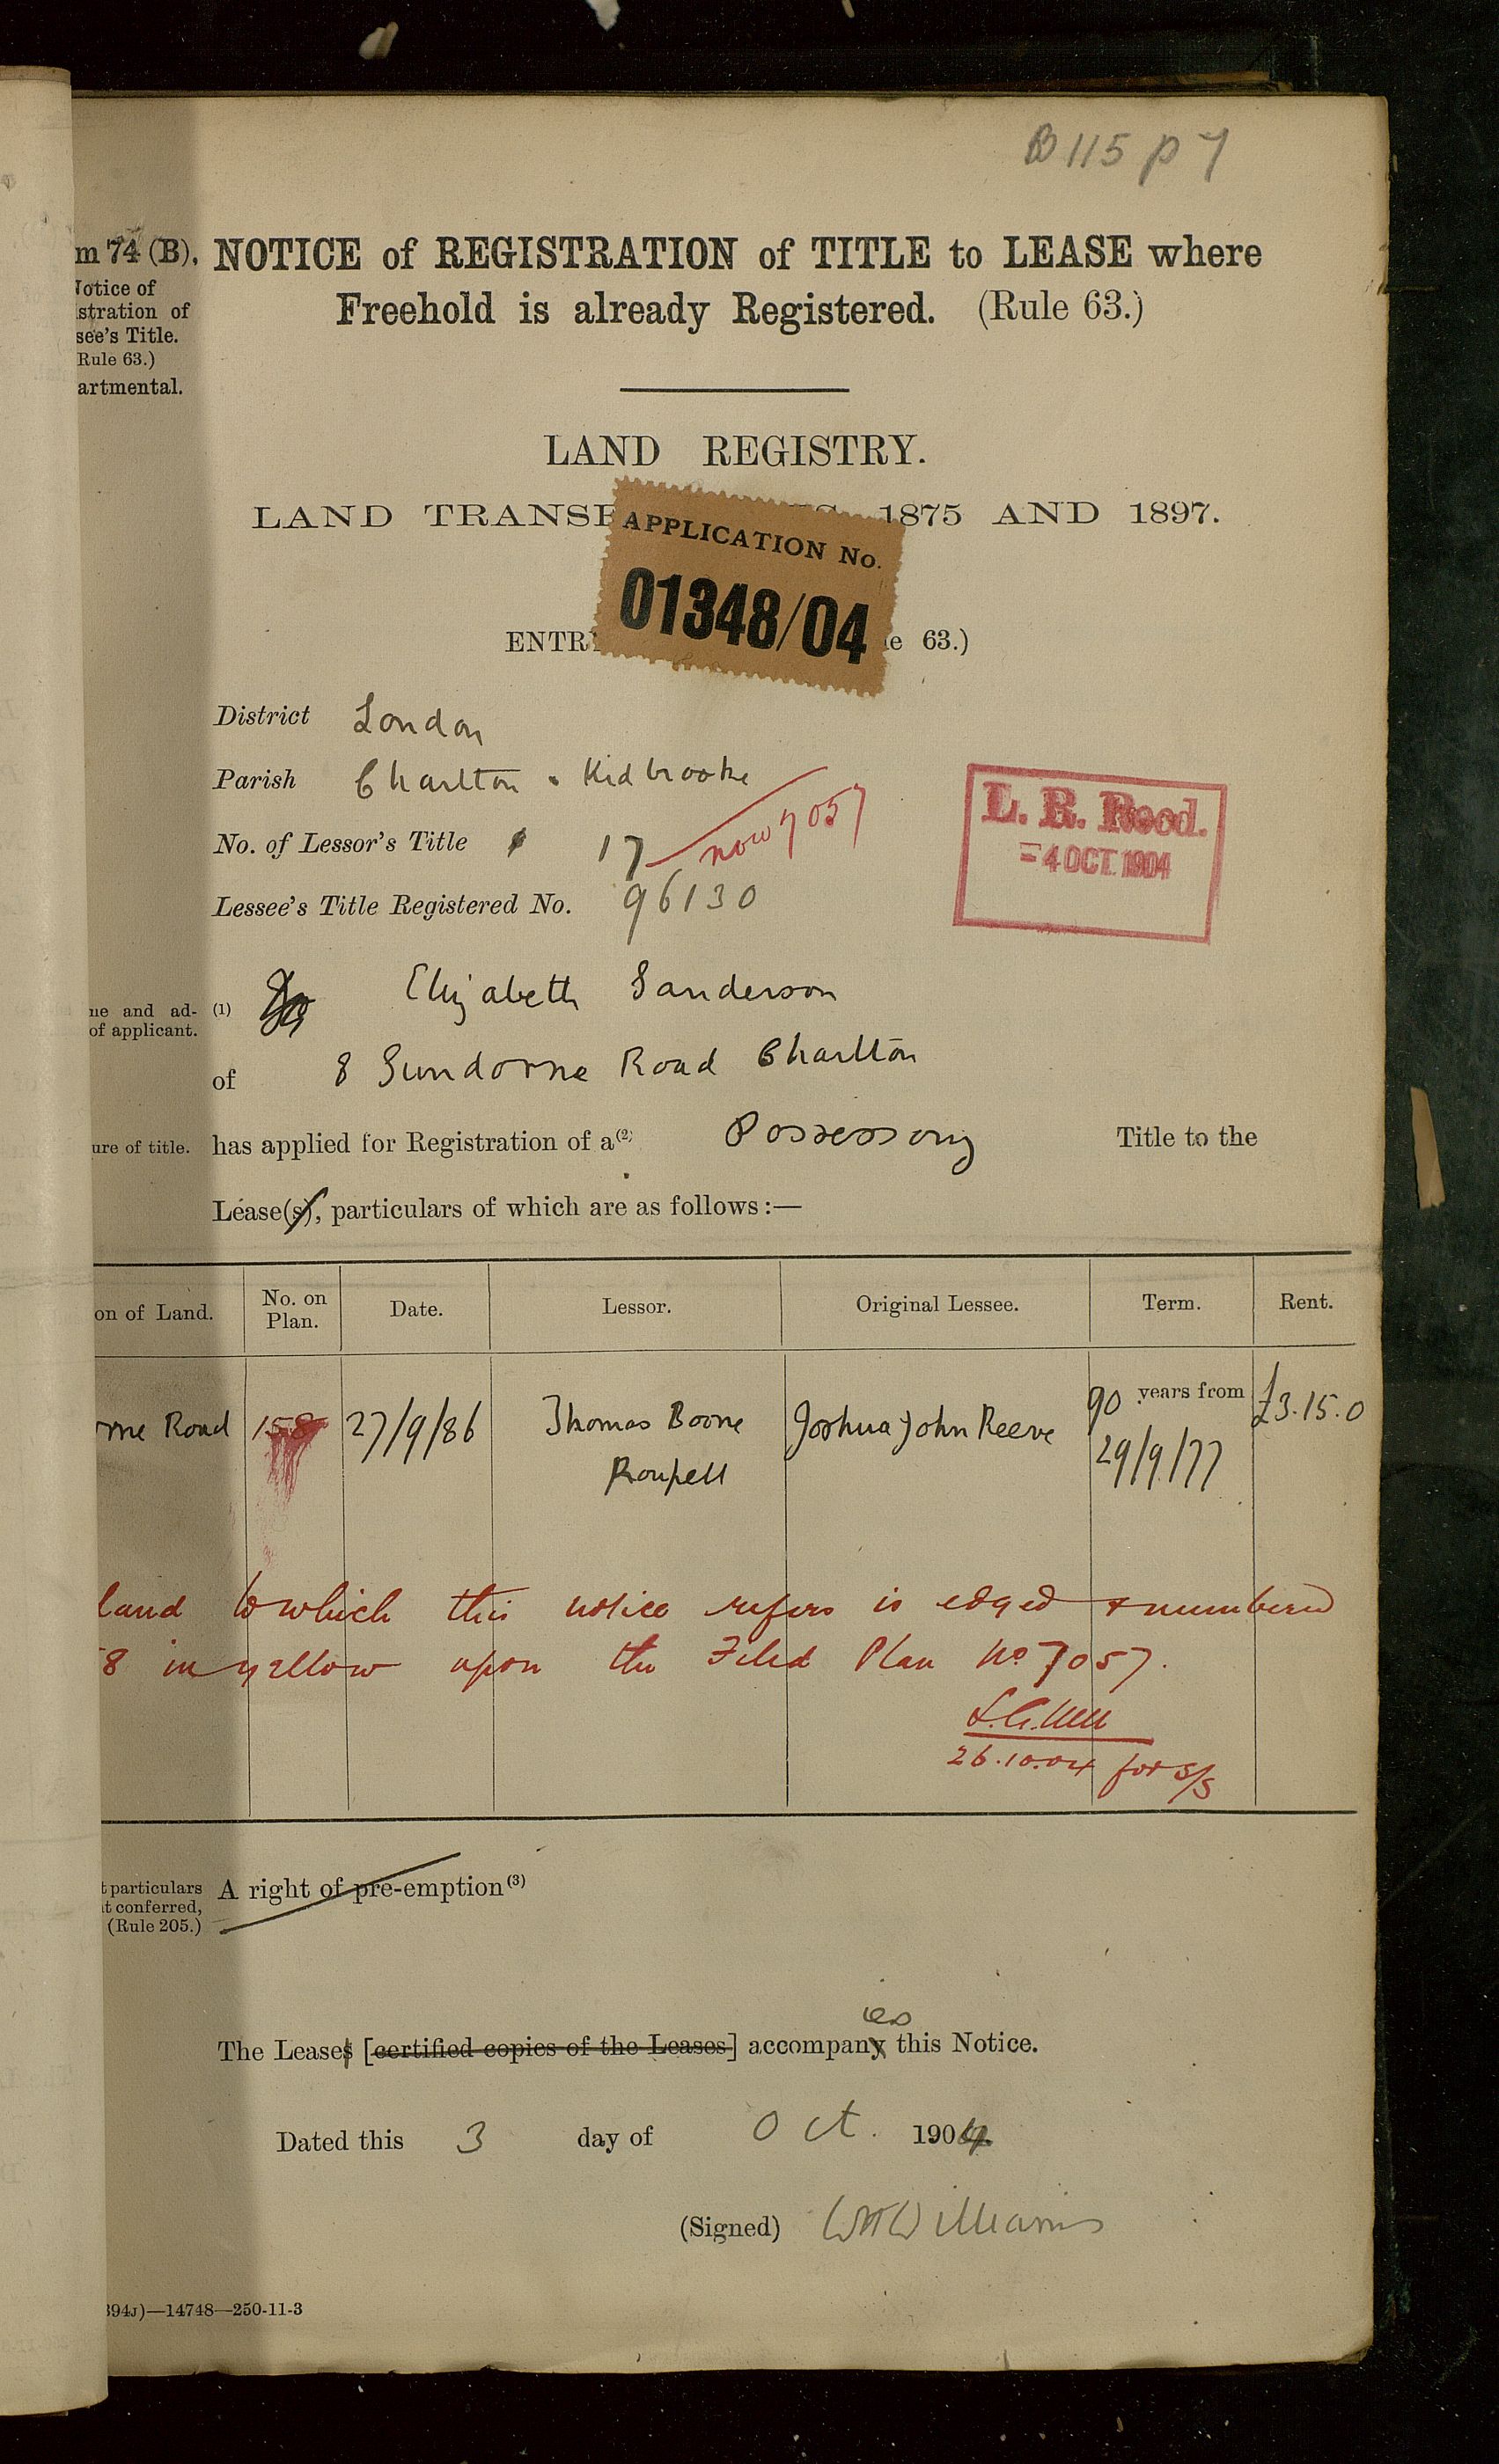 B 115 p 7
m 74 (B).
Notice of
istration of
see's Title.
Rule 63.)
artmental.
NOTICE of REGISTRATION of TITLE to LEASE where
Freehold is already Registered. (Rule 63.)
LAND REGISTRY.
LAND TRANSF 1875 AND 1897.
APPLICATION No.
01348/04
ENTR le 63.)
District London
Parish Charlton & Kidbrooke
No. of Lessor's Title 17 now 7057
Lessee's Title Registered No. 96130
L. R. Recd.
-4 OCT. 1904
ne and ad-
of applicant.
(1) Elizabeth Sanderson
of 8 Sundorne Road Charlton
ure of title.
has applied for Registration of a(2) Possessory Title to the
Lease(s), particulars of which are as follows :—
on of Land. No. on Plan. Date. Lessor. Original Lessee. Term. Rent.
rne Road 158 27/9/86 Thomas Boone Roupell Joshua John Reeve 90 years from 29/9/77 £3.15.0
land to which this notice refers is edged & numbered
8 in yellow upon the Filed Plan No 7057.
26.10.04 for S/S
t particulars
t conferred,
(Rule 205.)
A right of pre-emption(3)
The Leases [certified copies of the Leases] accompany ies this Notice.
Dated this 3 day of Oct. 1904
(Signed) WH Williams
394J)—14748—250-11-3